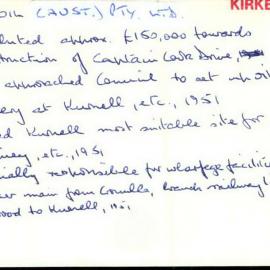 KIRKE
OIL (AUST.) PTY. LTD.
buted approx. £150,000 towards
struction of Captain Cook Drive,
approached Council to set up oil
ery at Kurnell, etc., 1951
ed Kurnell most suitable site for
nery, etc., 1951
ially responsible for wharfage facilities
er main from Cronulla, branch railway l
wood to Kurnell, 1951